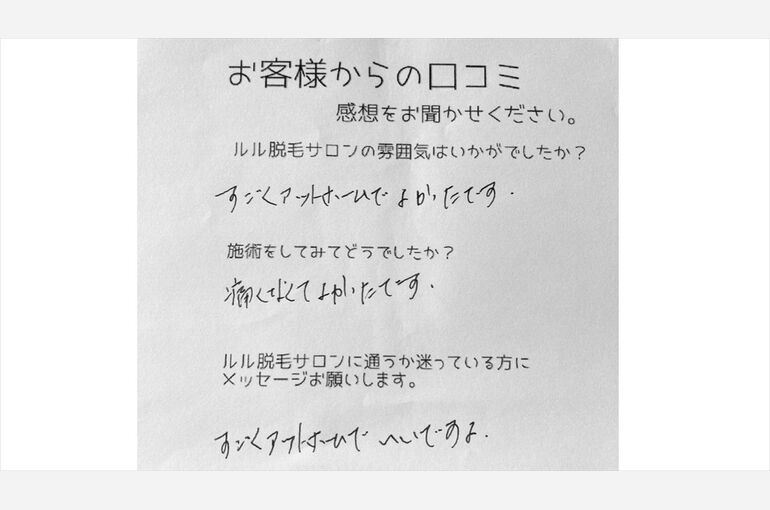 お客様からの口コミ
感想をお聞かせください。
ルル脱毛サロンの雰囲気はいかがでしたか？
すごくアットホームでよかったです．
施術をしてみてどうでしたか？
痛くなくてよかったです．
ルル脱毛サロンに通うか迷っている方に
メッセージお願いします。
すごくアットホームで いいですよ．